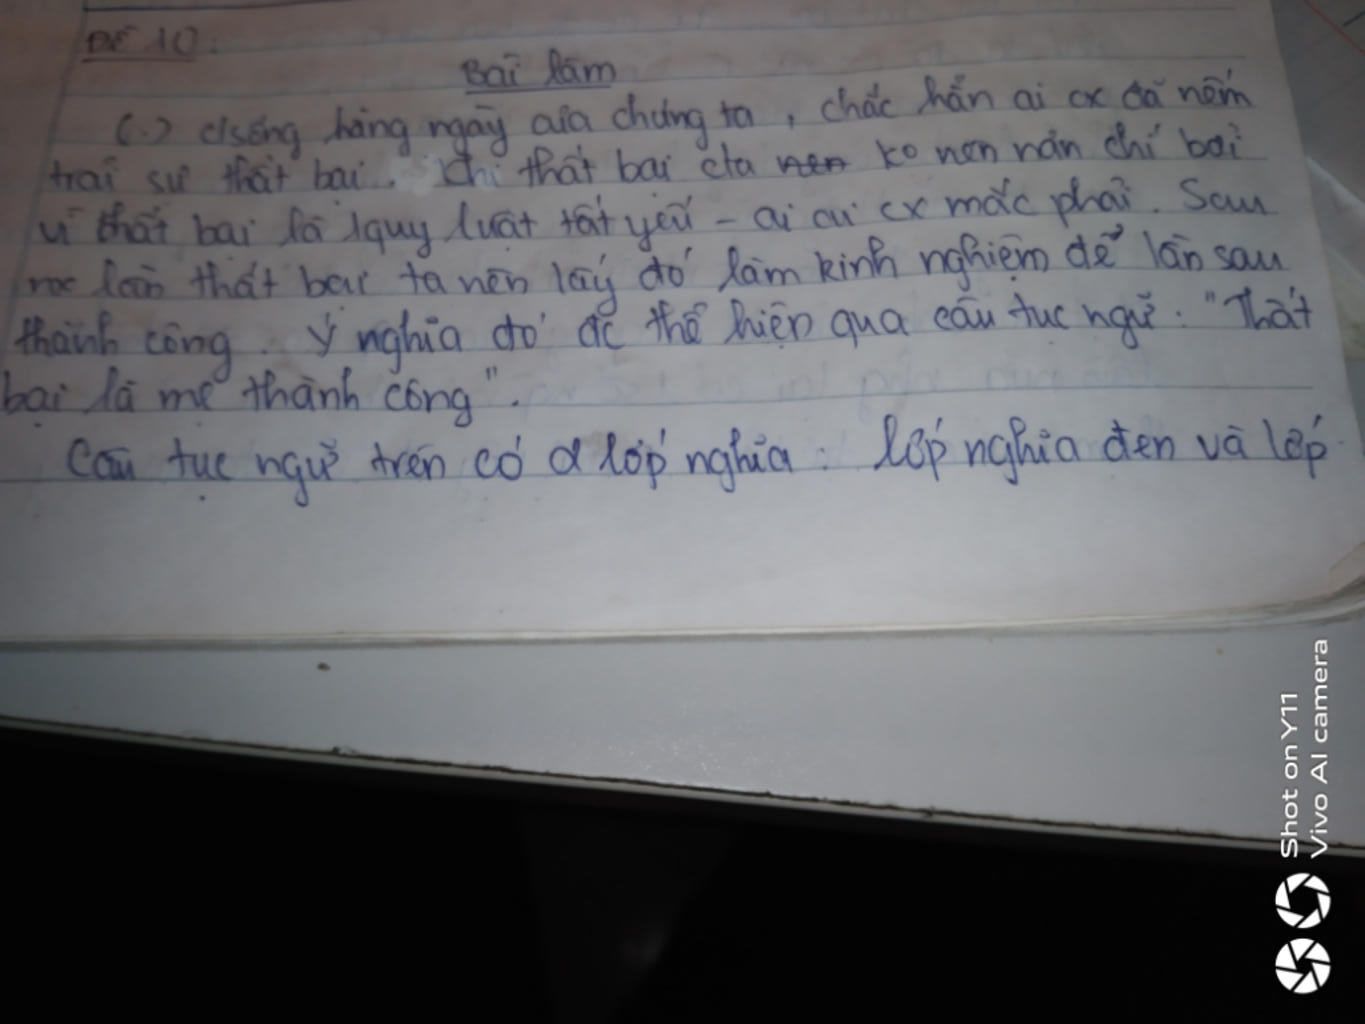 Đề 10:
Bài làm
(.) c/sống hàng ngày của chúng ta, chắc hẳn ai cx đã nếm
trải sự thất bại. Khi thất bại cta ko nên nản chí bởi
vì thất bại là 1 quy luật tất yếu - ai ai cx mắc phải. Sau
lần thất bại ta nên lấy đó làm kinh nghiệm để lần sau
thành công. Ý nghĩa đó đc thể hiện qua câu tục ngữ: "Thất
bại là mẹ thành công".
Câu tục ngữ trên có 2 lớp nghĩa: lớp nghĩa đen và lớp
Shot on Y11
Vivo AI camera